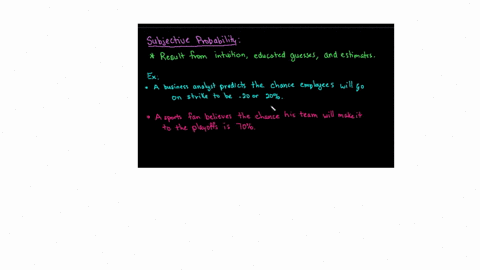 Subjective Probability:
* Result from intuition, educated guesses, and estimates.
Ex.
• A business analyst predicts the chance employees will go
on strike to be .20 or 20%.
• A sports fan believes the chance his team will make it
to the playoffs is 70%.